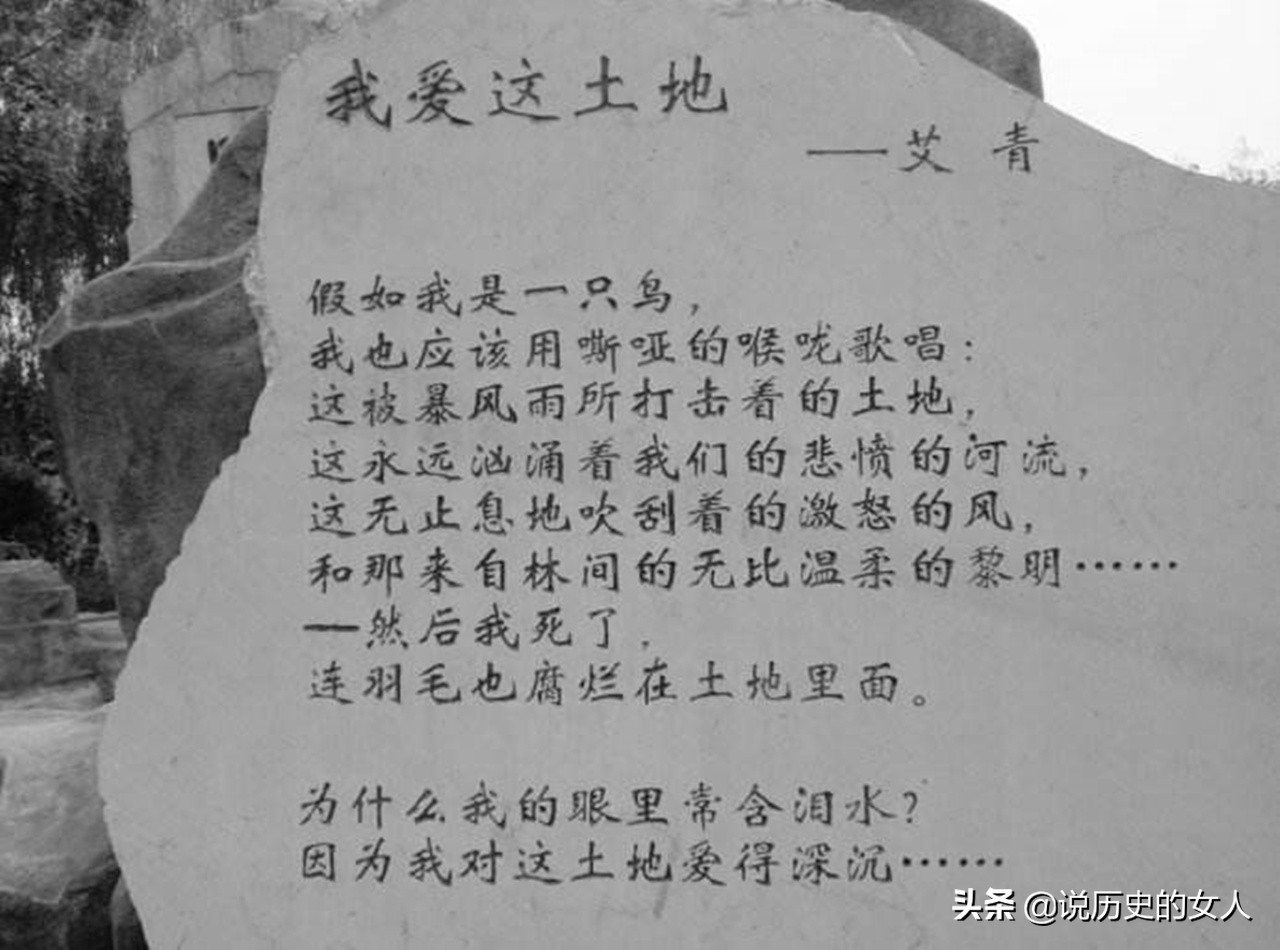 我爱这土地
——艾青
假如我是一只鸟，
我也应该用嘶哑的喉咙歌唱：
这被暴风雨所打击着的土地，
这永远汹涌着我们的悲愤的河流，
这无止息地吹刮着的激怒的风，
和那来自林间的无比温柔的黎明……
——然后我死了，
连羽毛也腐烂在土地里面。
为什么我的眼里常含泪水？
因为我对这土地爱得深沉……
头条 @说历史的女人